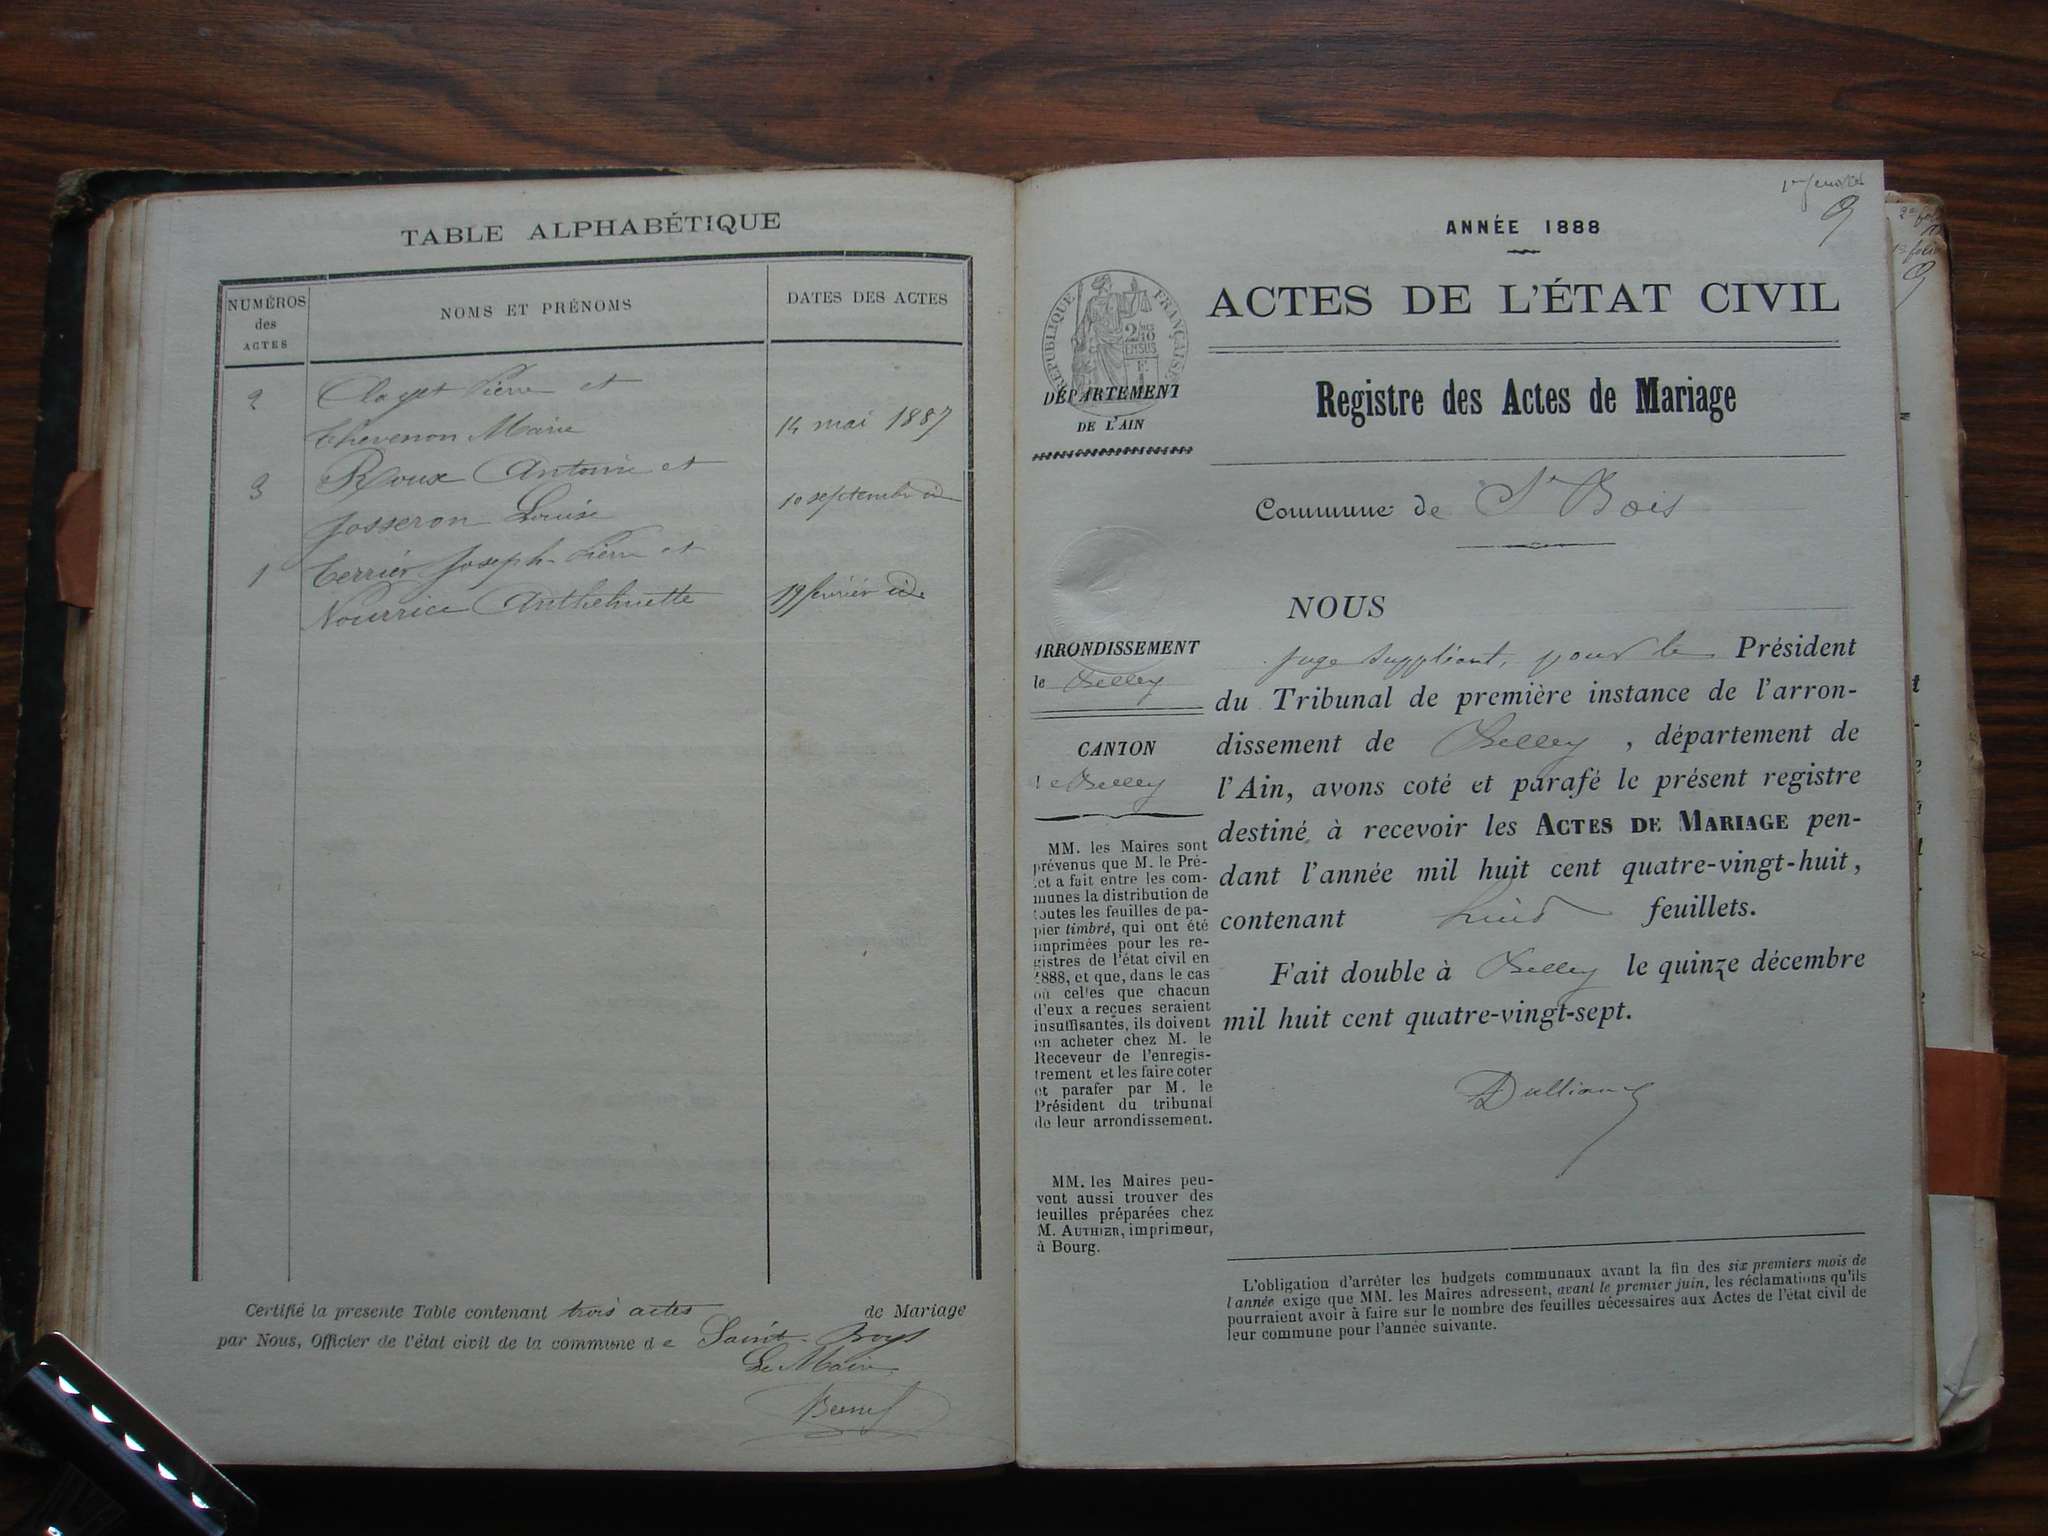 TABLE ALPHABÉTIQUE
NUMÉROS
des
ACTES
NOMS ET PRÉNOMS
DATES DES ACTES
2 Clayet Pierre et
Thevenon Marie 14 mai 1887
3 Roux Antoine et
Josseron Louise 10 septembre id
1 Terrier Joseph-Pierre et
Nourrice Anthelmette 19 février id.
Certifié la presente Table contenant trois actes de Mariage
par Nous, Officier de l'état civil de la commune de Saint-Boys
Le Maire
1er feuillet
ANNÉE 1888
ACTES DE L'ÉTAT CIVIL
RÉPUBLIQUE FRANÇAISE
DÉPARTEMENT
DE L'AIN
Registre des Actes de Mariage
Commune de St Bois
ARRONDISSEMENT
de Belley
CANTON
de Belley
MM. les Maires sont
prévenus que M. le Pré-
fet a fait entre les com-
munes la distribution de
toutes les feuilles de pa-
pier timbré, qui ont été
imprimées pour les re-
gistres de l'état civil en
1888, et que, dans le cas
où celles que chacun
d'eux a reçues seraient
insuffisantes, ils doivent
en acheter chez M. le
Receveur de l'enregis-
trement et les faire coter
et parafer par M. le
Président du tribunal
de leur arrondissement.
MM. les Maires peu-
vent aussi trouver des
feuilles préparées chez
M. AUTHIER, imprimeur,
à Bourg.
NOUS
Juge suppléant, pour le Président
du Tribunal de première instance de l'arron-
dissement de Belley, département de
l'Ain, avons coté et parafé le présent registre
destiné à recevoir les ACTES DE MARIAGE pen-
dant l'année mil huit cent quatre-vingt-huit,
contenant huit feuillets.
Fait double à Belley le quinze décembre
mil huit cent quatre-vingt-sept.
L'obligation d'arrêter les budgets communaux avant la fin des six premiers mois de
l'année exige que MM. les Maires adressent, avant le premier juin, les réclamations qu'ils
pourraient avoir à faire sur le nombre des feuilles nécessaires aux Actes de l'état civil de
leur commune pour l'année suivante.